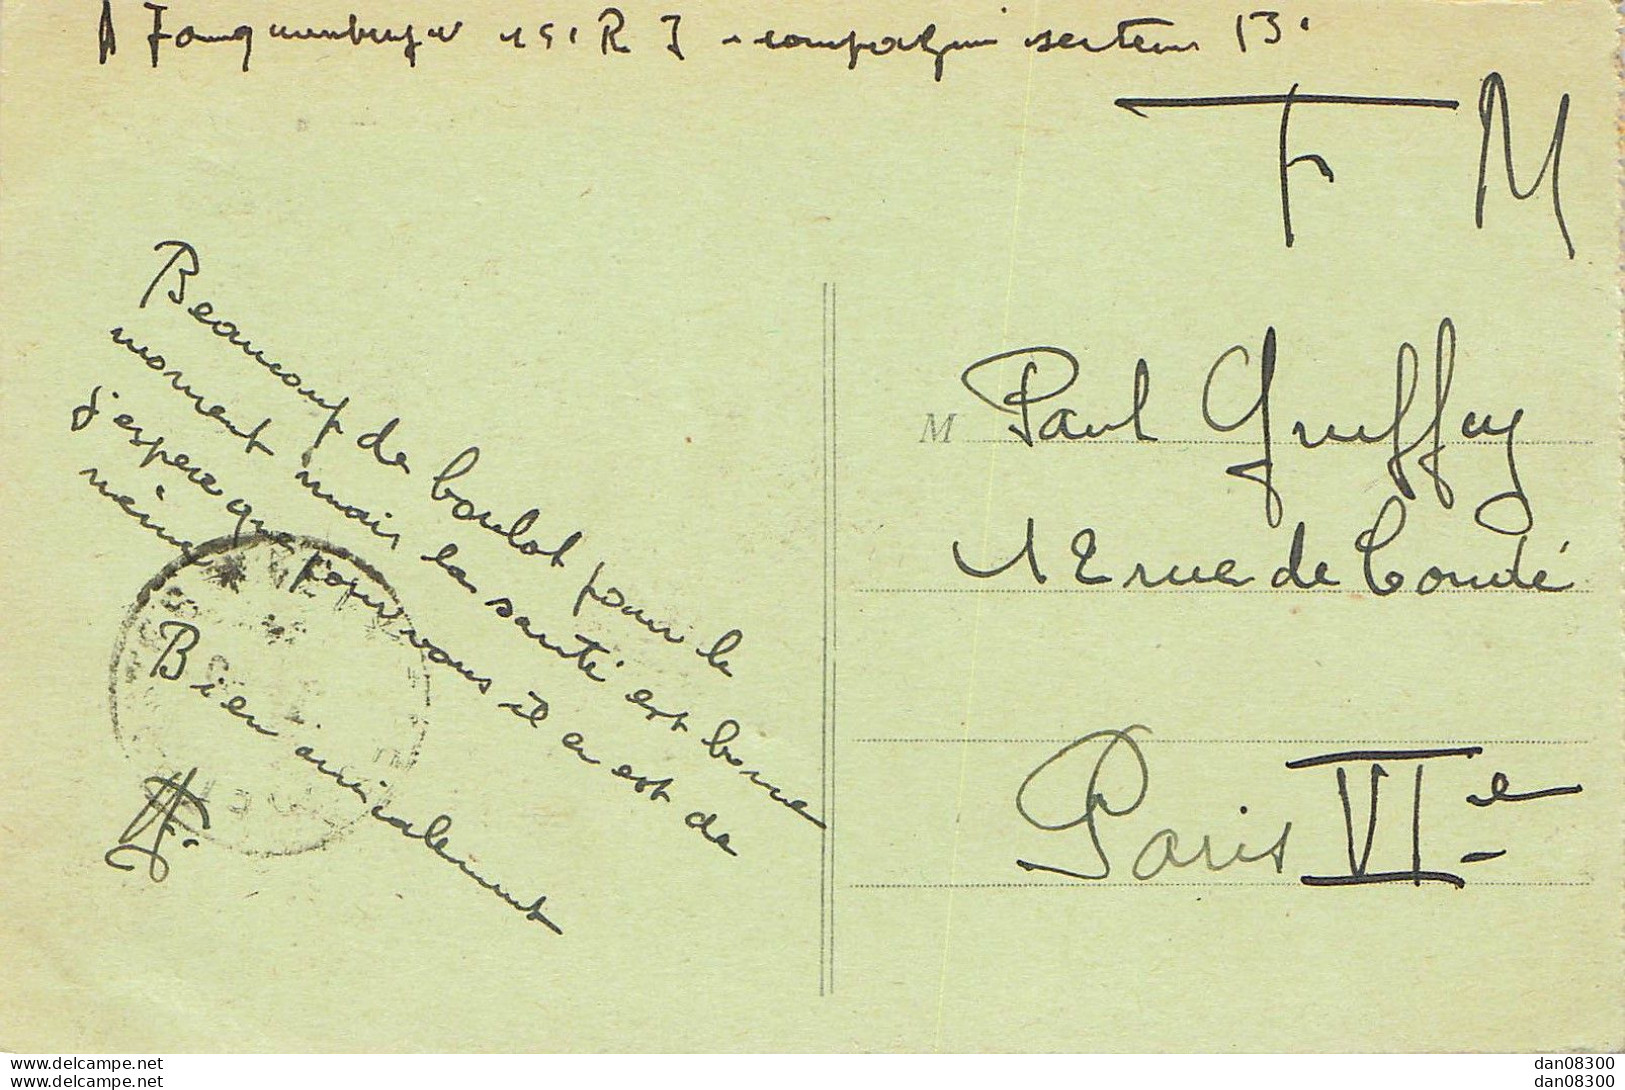 F M
Beaucoup de boulot pour le
moment mais la santé est bonne
j'espère que pour vous il en est de
même
Bien amicalement
M Paul Gruffay
12 rue de Condé
Paris VIe
www.delcampe.net
www.delcampe.net
dan08300
dan08300